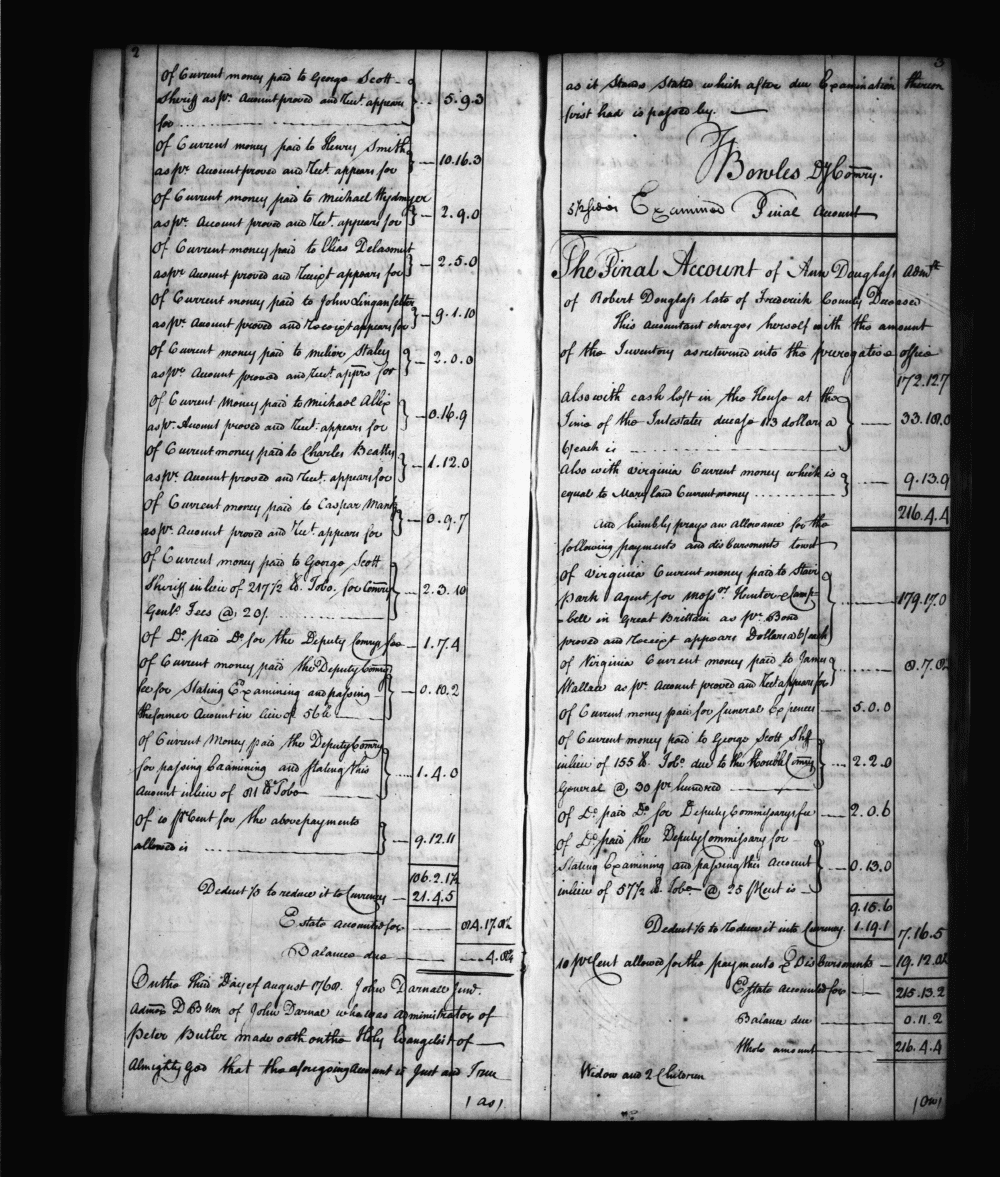 2
Of Current money paid to George Scott
Sheriff as pr. Account proved and Rect. appears
for 5.9.3
Of Current money paid to Henry Smith
as pr. Account proved and Rect. appears for 10.16.3
Of Current money paid to Michael
as pr. Account proved and Rect. appears for 2.9.0
Of Current money paid to Elias Delasmut
as pr Account proved and Receipt appears for 2.5.0
Of Current money paid to John Linganfelter
as pr. Account proved and Receipt appears for 9.1.10
Of Current money paid to melior Staley
as pr. Account proved and Rect. appears for 2.0.0
Of Current Money paid to Michael Allix
as pr. Account proved and Rect. appears for 0.16.9
Of Current money paid to Charles Beatty
as pr. Account proved and Rect. appears for 1.12.0
Of Current money paid to Caspar Mantz
as pr. Account proved and Rect. appears for 0.9.7
Of Current money paid to George Scott
Sheriff in lieu of 217½ lb. Tobo. for Comry
Genls Fees @ 20/. 2.3.10
Of Do. paid Do. for the Deputy Comrys fee 1.7.4
Of Current money paid the Deputy Comry
fee for Stating Examining and passing
the former Account in lieu of 56 lb 0.10.2
Of Current Money paid the Deputy Comry
for passing Examining and Stating this
Account in lieu of 81 lb Tobo 1.4.0
Of 10 pr Cent for the above payments
allowed is 9.12.11
106.2.1½
Deduct 1/5 to reduce it to Currency 21.4.5
Estate accounted for 84.17.8½
Balance due 4.8½
On the third Day of August 1768. John Darnall Junr.
Admor D B Non of John Darnal who was Administrator of
Peter Butler made oath on the Holy Evangelist of
Almighty God that the aforegoing Account is Just and True
/as/
3
as it Stands Stated which after due Examination thereon
first had is passed by.
Bowles Dy Comry.
Examined Final Account
The Final Account of Ann Douglass Admx
of Robert Douglass late of Frederick County Deceased
This Accountant charges herself with the amount
of the Inventory as returned into the prerogative office
172.12.7
Also with cash left in the House at the
Time of the Intestates decease 113 dollars a
6/ each is 33.18.0
Also with Virginia Current money which is
equal to Maryland Current money 9.13.9
216.4.4
And humbly prays an allowance for the
following payments and disbursements towit
Of Virginia Current money paid to
park Agent for Messrs. Hunter & Camp
bell in Great Brittain as pr. Bond
proved and Receipt appears Dollars a 6/ each 179.17.0
Of Virginia Current money paid to James
Wallace as pr. Account proved and Rect. appears for 8.7.8½
Of Current money paid for funeral Expences 5.0.0
Of Current money paid to George Scott Shff
in lieu of 155 lb. Tobo. due to the Honble Comry
General @ 30 pr. hundred 2.2.0
Of Do. paid Do. for Deputy Commissarys fee 2.0.6
Of Do. paid the Deputy Commissary for
Stating Examining and passing this Account
in lieu of 57½ lb. Tobo @ 25 pr Cent is 0.13.0
9.15.6
Deduct 1/5 to reduce it into Currency 1.19.1 7.16.5
10 pr Cent allowed for the payments & Disbursements 19.12.0½
Estate accounted for 215.13.2
Balance due 0.11.2
Whole amount 216.4.4
Widow and 2 Children
/On/